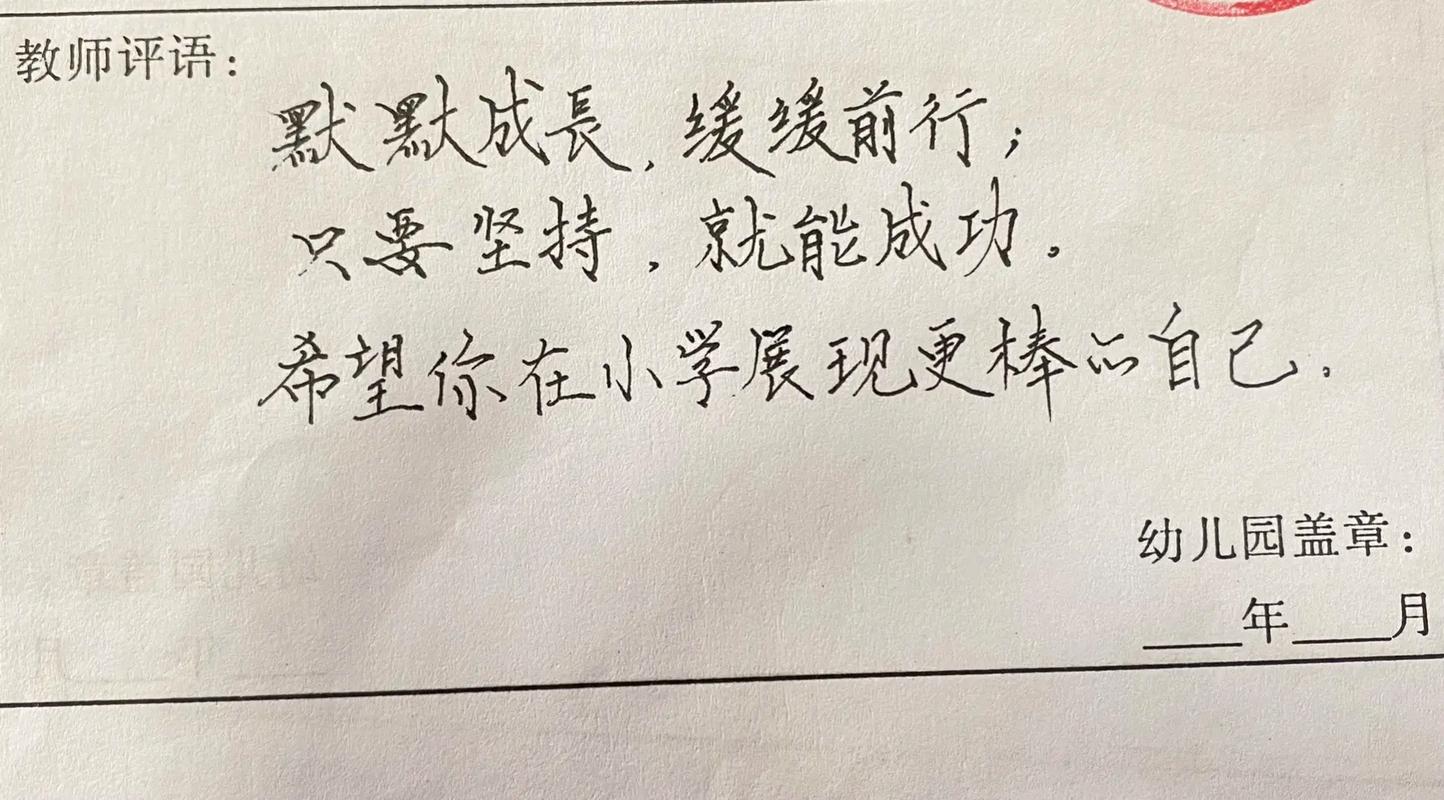 教师评语：
默默成長，缓缓前行；
只要坚持，就能成功。
希望你在小学展现更棒的自己。
幼儿园盖章：
____年____月